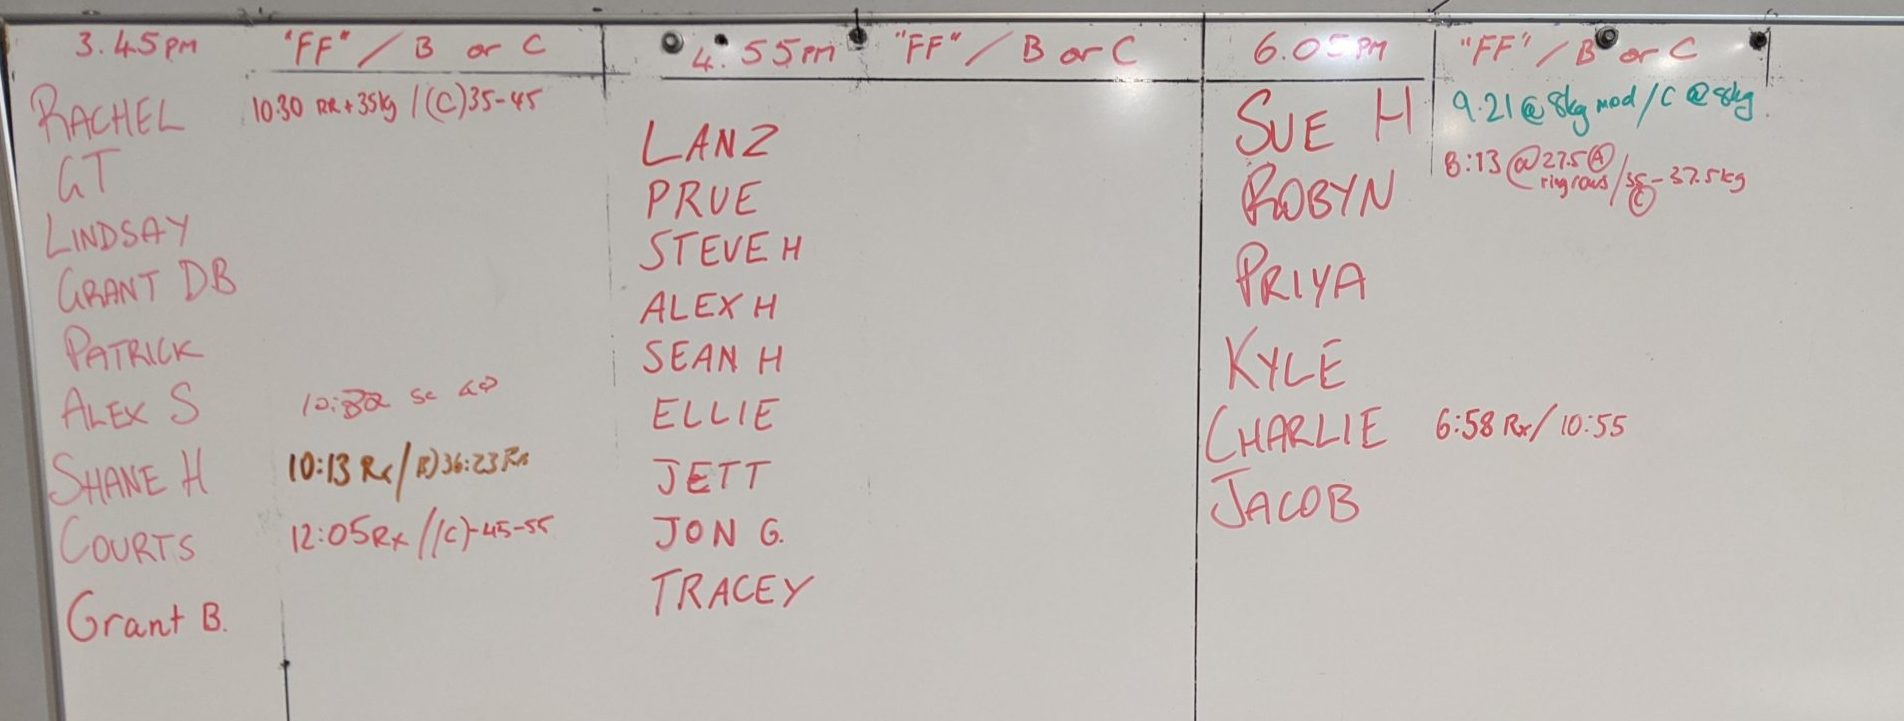 3.45PM "FF" / B or C
RACHEL 10.30 RR+35kg /(C)35-45
GT
LINDSAY
GRANT DB
PATRICK
ALEX S sc
SHANE H 10:13 Rx/B)36:23 Rx
COURTS 12:05 Rx /(C)-45-55
Grant B.
4.55pm "FF" / B or C
LANZ
PRUE
STEVE H
ALEX H
SEAN H
ELLIE
JETT
JON G.
TRACEY
6.05PM "FF" / B or C
SUE H 9.21 @ 8kg mod / C @ 8kg.
ROBYN 8:13 @ 27.5 A
ring rows / 35-37.5kg
C
PRIYA
KYLE
CHARLIE 6:58 Rx / 10:55
JACOB